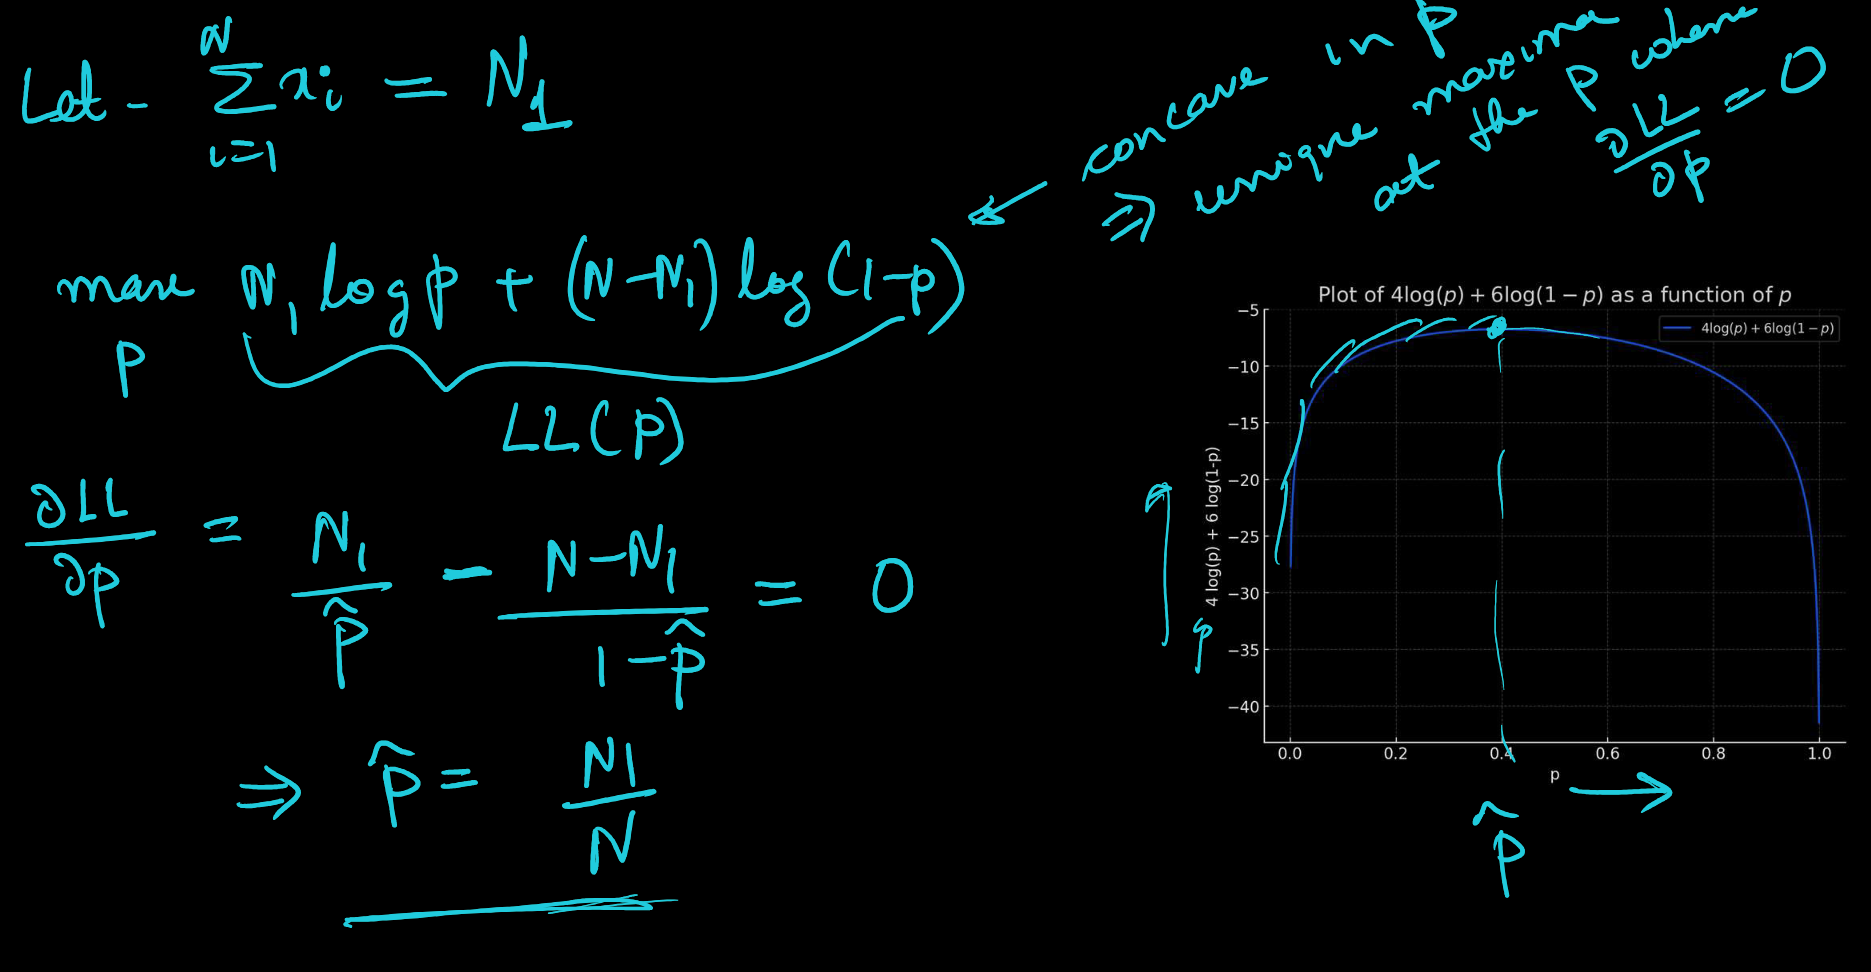 Let - N∑i=1 xi = N1
concave in p
⇒ unique maxima
at the p where
∂LL/∂p = 0
max p N1 log p + (N-N1) log (1-p)
LL(p)
∂LL/∂p = N1/p̂ - N-N1/1-p̂ = 0
⇒ p̂ = N1/N
Plot of 4log(p) + 6log(1 − p) as a function of p
4log(p) + 6log(1 − p)
4 log(p) + 6 log(1-p)
−5
−10
−15
−20
−25
−30
−35
−40
0.0 0.2 0.4 0.6 0.8 1.0
p
p̂